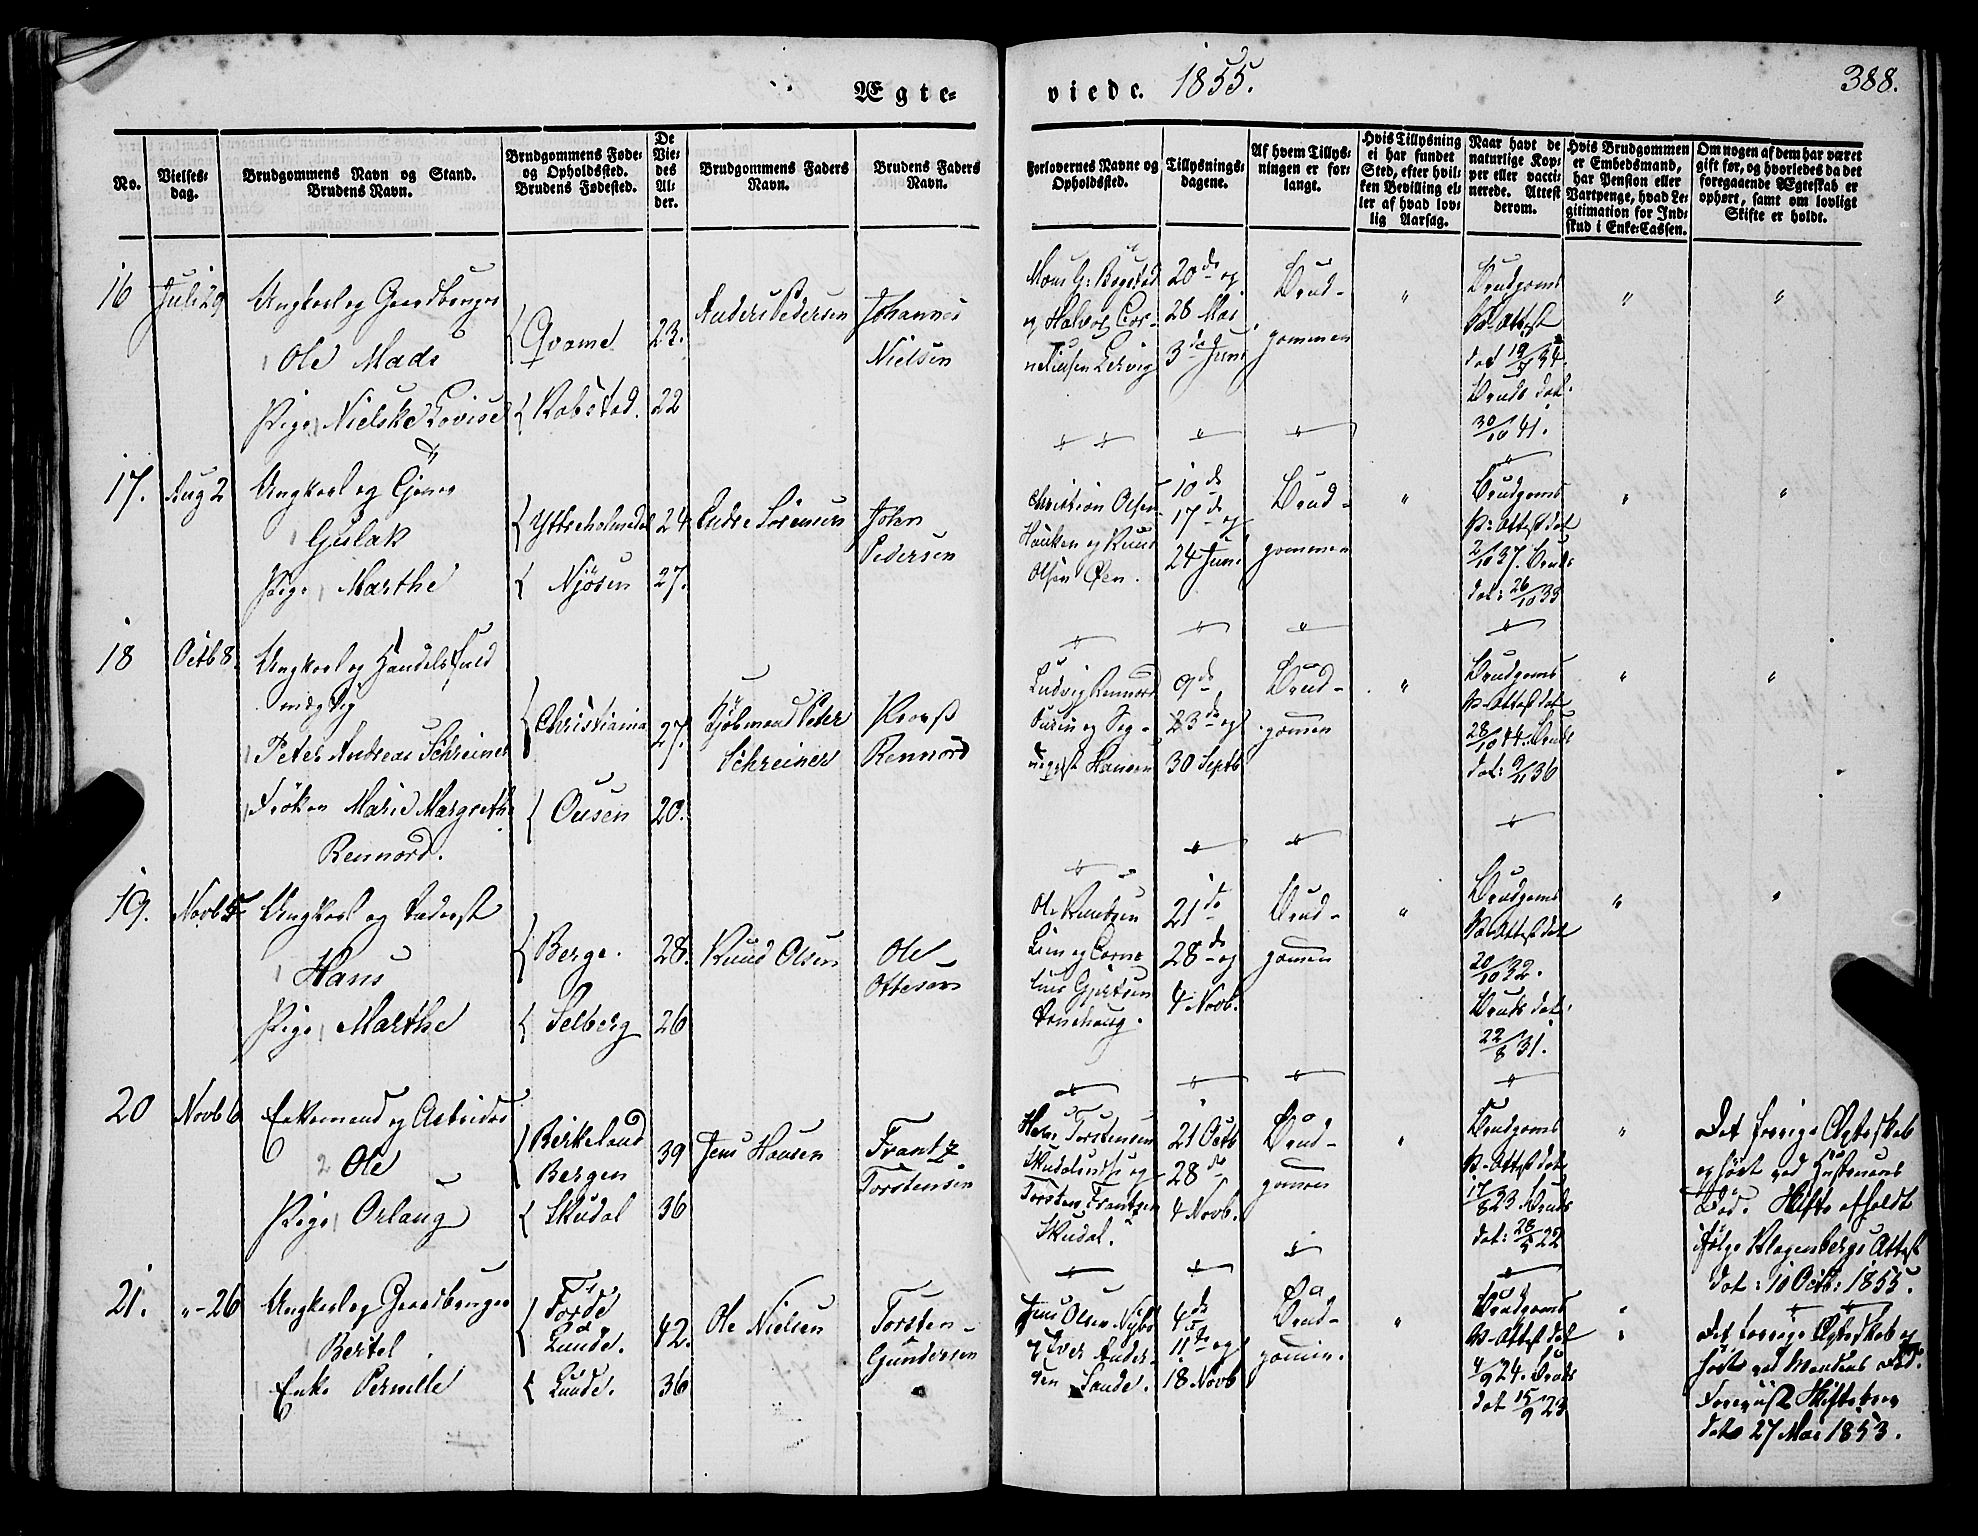 Ægte-
viede. 1855.
388.
No.
Vielses-
dag.
Brudgommens Navn og Stand.
Brudens Navn.
Brudgommens Føde-
og Opholdssted.
Brudens Fødested.
De
Vie-
des
Al-
der.
Brudgommens Faders
Navn.
Brudens Faders
Navn.
Forlovernes Navne og
Opholdssted.
Tillysnings-
dagene.
Af hvem Tillys-
ningen er for-
langt.
Hvis Tillysning
ei har fundet
Sted, efter hvil-
ken Bevilling el-
ler af hvad lov-
lig Aarsag.
Naar havt de
naturlige Kop-
per eller vacci-
nerede. Attest
derom.
Hvis Brudgommen
er Embedsmand,
har Pension eller
Vartpenge, hvad Le-
gitimation for Ind-
skud i Enke-Cassen.
Om nogen af dem har været
gift før, og hvorledes da det
foregaaende Ægteskab er
ophørt, samt om lovligt
Skifte er holdt.
16 Juli 29 Ungkarl og Gaardbruger
Ole Mads
Pige Nielske Lovise
Qvame 23.
Kobstad. 22
Anders Pedersen
Johannes
Nielsen
Mons G: Bøgstad
og Halvor Cor-
neliusen Lervig
20de og
28 Mai
3de Juni
Brud-
gommen
Brudgoms
V-Attest
dat 19/ 34.
Bruds dat.
30/10 41.
17. Aug 2 Ungkarl og
Gulak
Pige Marthe
Yttreholmedal 24
Njøsen 27.
Endre Sørensen
John
Pedersen
Christian Olsen
Hauken og Knud
Olsen Øen.
10de
17de og
24 Juni
Brud-
gommen
Brudgoms
V-Attest dat
2/10 37. Bruds
dat: 26/10 33
18 Octb 8. Ungkarl og Handelsfuld
mægtig
Peter Andreas Schreiner
Frøken Marie Margrethe
Rennord.
Christiania 27.
Ousen 20.
Kjøbmand Peter
Schreiner
Rennord
Ludvig Rennord
Hansen
9de
23de og
30 Septb
Brud-
gomen
Brudgoms
V-Attest dat
28/10 44. Bruds
dat: 9/11 36
19. Novb 5 Ungkarl og Inderst
Hans
Pige Marthe
Berge. 28.
Selberg 26
Knud Olsen
Ole
Ottesen
Ole Knudsen
Leim og Corne
lius Gjertsen
21de
28de og
4 Novb.
Brud-
gomen
Brudgoms
V-Attest dat
20/10 32.
Bruds dat.
22/8 31.
20 Novb 6 Enkemand og
2 Ole
Pige Orlaug
Birkeland
Bergen 39
Skudal 36
Jens Hansen
Frantz
Torstensen
Hans Torstensen
og
Torsten Frantzen
Skudal.
21 Octb
28de
4 Novb.
Brud-
gomen
Brudgoms
V-Attest dat
17/8 23 Bruds
dat: 28/5 22
Det forrige Ægteskab
ophørt ved Hustruens
Død. Skifte afholdt
ifølge Klagenbergs Attest
dat: 10 Octb: 1855.
21. "-26 Ungkarl og Gaardbruger
Bertel
Enke Pernille
Førde
Lunde. 42.
Lunde. 36
Ole Nielsen
Torsten
Gundersen
Jens Olsen Nybø
og Iver Ander-
sen Sande.
4de
11de og
18 Novb
Brud-
gomen.
Brudgoms
V-Attest dat
4/9 24. Bruds
dat 15/9 23
Det forrige Ægteskab op
hørt ved Mandens Død.
Foreviist Skiftebrev
dat 27 Mai 1853.